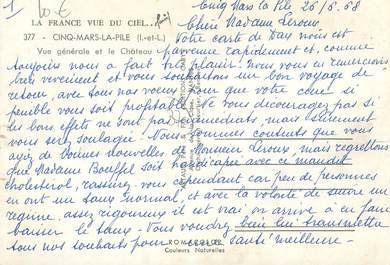 1
10 €
LA FRANCE VUE DU CIEL...
377 - CINQ-MARS-LA-PILE (I.-et-L.)
Vue générale et le Château
Cinq Mars la Pile 26/6.68
Chère Madame Leroux,
Votre carte de Dax nous est
parvenue rapidement et, comme
toujours nous a fait très plaisir. Nous vous en remercions
bien vivement et vous souhaitons un bon voyage de
retour, avec tous nos voeux pour que votre cure si
pénible vous soit profitable. Ne vous découragez pas si
les bons effets ne sont pas immédiats, mais sûrement
vous serez soulagée. Nous sommes contents que vous
ayez de bonnes nouvelles de Monsieur Leroux, mais regrettons
que Madame Bouffel soit handicapée avec ce maudit
cholestérol, rassurez-vous cependant car peu de personnes
en ont un taux normal, et avec la volonté de suivre un
régime, assez rigoureux il est vrai on arrive à en faire
baisser le taux. Vous voudrez bien lui transmettre
tous nos souhaits pour santé meilleure -
ROMAE
Couleurs Naturelles